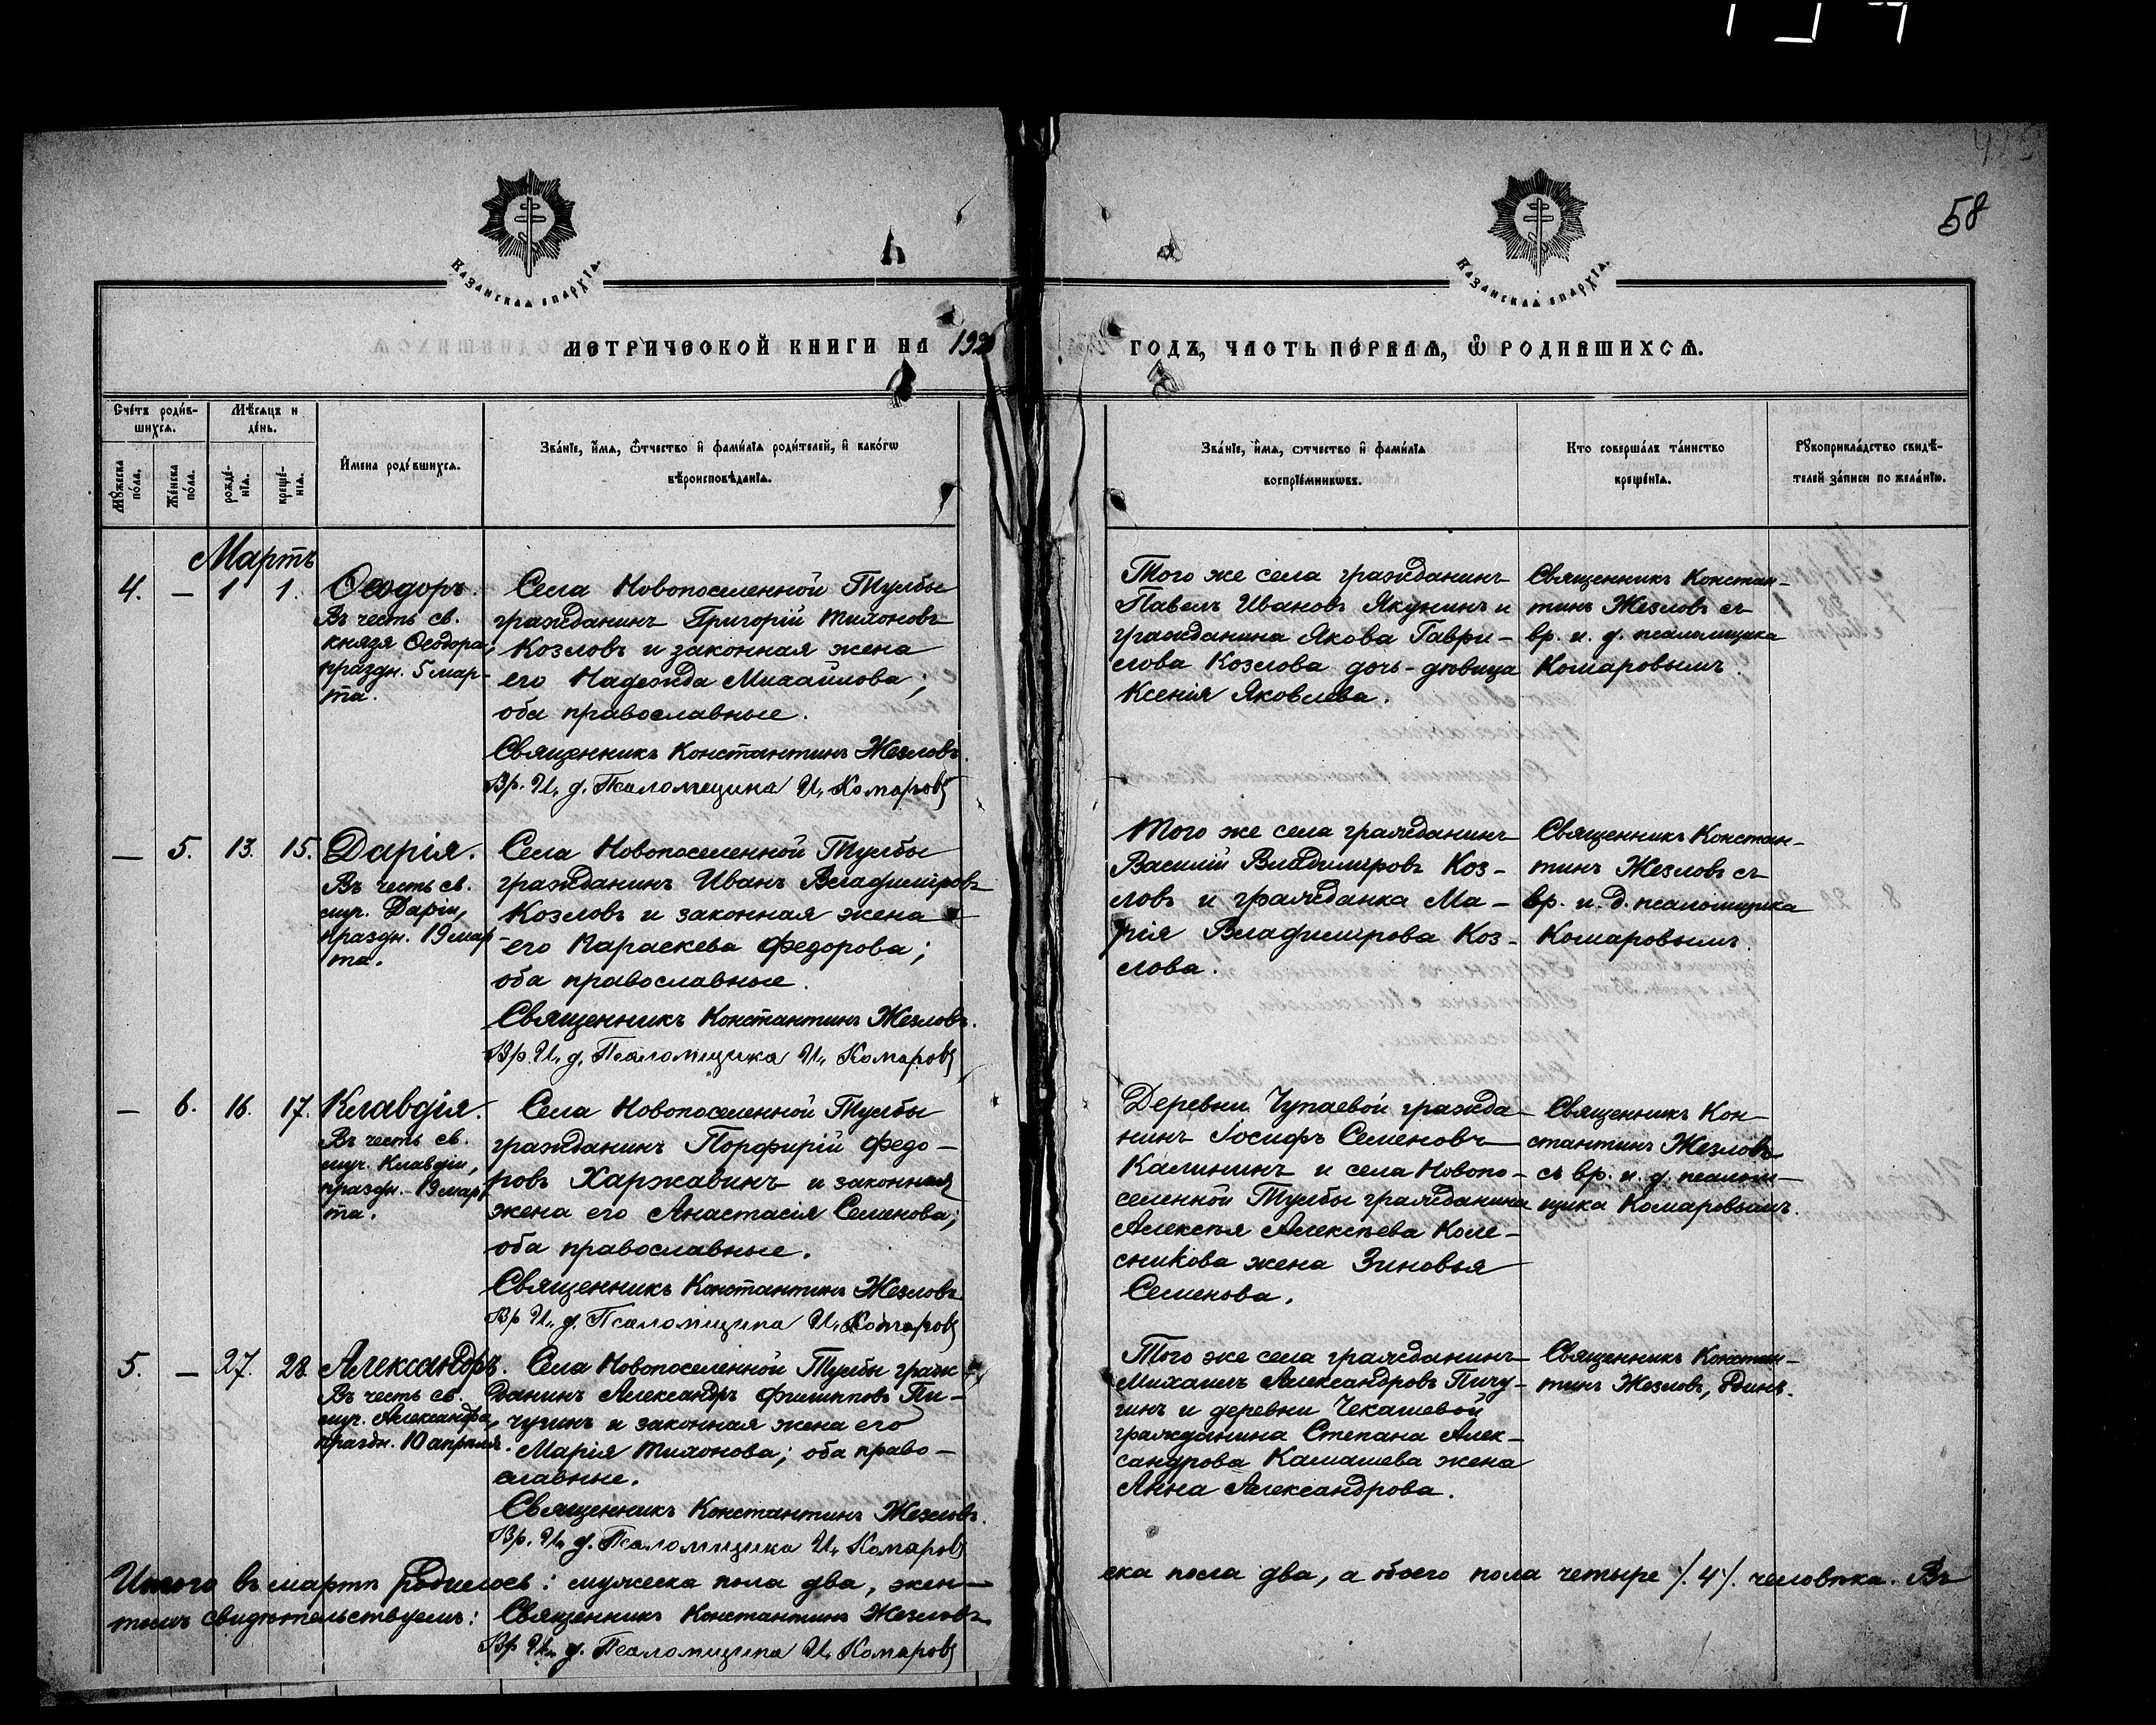 58
Казанская епархія.
Казанская епархія.
МЕТРИЧЕСКОЙ КНИГИ НА 1920
ГОДЪ, ЧАСТЬ ПЕРВАЯ, Ѿ РОДИВШИХСЯ.
Сче́тъ роди́в-
шихся.
Мѣсяцъ и
де́нь.
Мꙋжеска по́ла.
Же́нска по́ла.
рожде́-
нія.
креще́-
нія.
И́мена роди́вшихся.
Зва́ніе, и́мя, ѻ҆́тчество и҆ фами́лія роди́телей, и҆ како́гѡ
вѣроисповѣ́данія.
Зва́ніе, и́мя, ѻтчество и҆ фами́лія
воспріе́мникѡвъ.
Кто соверша́лъ та́инство
креще́нія.
Рꙋкоприкла́дство свидѣ́-
телей за́писи по жела́нію.
Мартъ
4. — 1 1. Ѳеодоръ.
Въ честь св.
князя Ѳеодора,
праздн. 5 мар-
та.
Села Новопоселенной Тумбы
гражданинъ Григорій Тихоновъ
Козловъ и законная жена
его Надежда Михайлова;
оба православные.
Священникъ Константинъ Жезловъ.
Вр. И. д. Псаломщика И. Комаровъ
Того же села гражданинъ
Павелъ Ивановъ Якунинъ и
гражданина Якова Гаври-
лова Козлова дочь-дѣвица
Ксенія Яковлева.
Священникъ Констан-
тинъ Жезловъ съ
вр. и. д. псаломщика
Комаровымъ.
— 5. 13. 15. Дарія.
Въ честь св.
муч. Даріи,
праздн. 19 мар
та.
Села Новопоселенной Тумбы
гражданинъ Иванъ Владиміровъ
Козловъ и законная жена
его Параскева Федорова;
оба православные.
Священникъ Константинъ Жезловъ.
Вр. И. д. Псаломщика И. Комаровъ
Того же села гражданинъ
Василій Владиміровъ Коз-
ловъ и гражданка Ма-
рія Владимірова Коз-
лова.
Священникъ Констан-
тинъ Жезловъ съ
вр. и. д. псаломщика
Комаровымъ.
— 6. 16. 17. Клавдія.
Въ честь св.
муч. Клавдіи,
праздн. 19 мар
та.
Села Новопоселенной Тумбы
гражданинъ Порфирій Федо-
ровъ Харжавинъ и законная
жена его Анастасія Семенова;
оба православные.
Священникъ Константинъ Жезловъ
Вр И. д. Псаломщика И. Комаровъ
Деревни Чупаевой гражда-
нинъ Іосифъ Семеновъ
Калининъ и села Новопо-
селенной Тумбы гражданина
Алексѣя Алексѣева Коле-
сникова жена Зиновья
Семенова.
Священникъ Кон-
стантинъ Жезловъ
съ вр. и. д. псалом-
щика Комаровымъ.
5. — 27. 28. Александръ.
Въ честь св.
муч. Александра,
праздн. 10 апрѣля.
Села Новопоселенной Тумбы граж-
данинъ Александръ Филипповъ Пи-
чугинъ и законная жена его
Марія Тихонова; оба право-
славные.
Священникъ Константинъ Жезловъ.
Вр. И. д. Псаломщика И. Комаровъ
Того же села гражданинъ
Михаилъ Александровъ Пичу-
гинъ и деревни Чекашевой
гражданина Степана Алек-
сандрова Камашева жена
Анна Александрова.
Священникъ Констан-
тинъ Жезловъ, одинъ.
Итого въ мартѣ родилось: мужеска пола два, жен-
ска пола два, а обоего пола четыре /.4/. человѣка. Въ
томъ свидѣтельствуемъ: Священникъ Константинъ Жезловъ
Вр И. д. Псаломщика И. Комаровъ